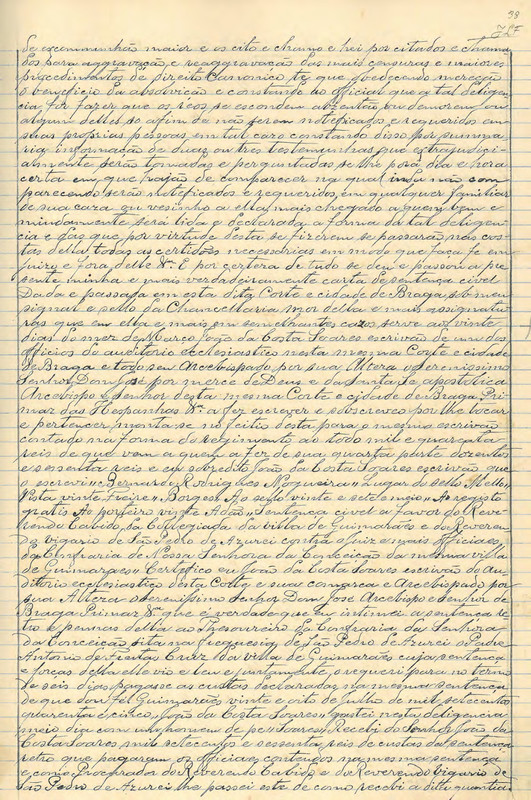 39
de excommunhão maior e os cito e chamo e hei por citados e chama
dos para aggravação e reaggravação das mais censuras e maiores
procedimentos de Direito Canonico té que obedecendo mereção
o beneficio da absolvição e constando ao official que a tal deligen
cia for fazer que os reos se escondem ausentão ou demorem ou
algum delles a fim de não serem noteficados e requeridos em
suas proprias pessoas em tal cazo constando disso por summa
ria informação de duas ou tres testemunhas que estrajudici-
almente serão tomadas e perguntadas se lhe porá dia e hora
certa em que hajão de comparecer na qual indo não com
parecendo serão noteficados e requeridos em qualquer familiar
de sua caza ou vezinho a ella mais chegado a quem bem e
mindamente será lida e declarada a forma da tal deligen
cia e das que por virtude desta se fizerem se passarão nas cos
tas della todas as certidões necessarias em modo que faça fé em
juizo e fora delle Va. E por certeza de tudo se deu e passou a pre
sente minha e mais verdadeiramente carta de sentença civel
Dada e passada em esta dita Corte e cidade de Braga sob meu
signal e sello da Chancellaria mor della e mais assignatu
ras que em ella e mais em semelhantes cazos serve aos vinte
dias do mez de Março João da Costa Soares escrivão de um dos
officios do auditorio ecclesiastico nesta mesma Corte e cidade
de Braga e todo seu Arcebispado por sua Alteza o Serenissimo
Senhor Dom José por merce de Deus e da Santa Sé apostolica
Arcebispo e Senhor desta mesma Corte e cidade de Braga Pri
maz das Hespanhas Va. a fez escrever e sobscreveo por lhe tocar
e pertencer, monta-se no feitio desta para o mesmo escrivão
contado na forma do regimento ao todo mil e quarenta
reis de que vem a quem a fez de sua quarta parte dozentos
e sessenta reis e eu sobredito João da Costa Soares escrivão que
o escrevi" Bernardo Rodrigues Nogueira" Lugar do sello" Mello"
Vista vinte Freire" Borges" Ao sello vinte e sete e meio" Ao registo
gratis Ao porteiro vinte Adão" Sentença civel a favor do Reve-
rendo Cabido da Collegiada da villa de Guimarães e do Reveren
do vigario de São Pedro de Azurei contra o juiz e mais officiaes
da Confraria de Nossa Senhora da Conceição da mesma villa
de Guimarães" Certefico eu João da Costa Soares escrivão do Au-
ditorio ecclesiastico desta Corte e sua comarca e Arcebispado por
sua Alteza o Serenissimo Senhor Dom José Arcebispo e Senhor de
Braga Primaz Va. que é verdade que eu intimei a sentença re
tro e pennas della ao Thesoureiro da Confraria da Senhora
da Conceição sita na freguesia de São Pedro de Azurei o Padre
Antonio de Freitas Cruz da villa de Guimarães cuja sentença
e forças della elle vio e leu e juntamente o requeri para no termo
de seis dias pagasse as custas declaradas na mesma sentença
de que dou fé. Guimarães vinte e oito de Julho de mil setecentos
quarenta e cinco João da Costa Soares" gastei nesta deligencia
meio dia com um homem de pé" Soares" Recebi do Senhor João da
Costa Soares mil setecentos e sessenta reis de custas da sentença
retro que pagaram os officiaes contendos na mesma sentença
e como Procurador do Reverendo Cabido e do Reverendo vigario de
São Pedro de Azurei lhe passei este de como recebi a dita quantia